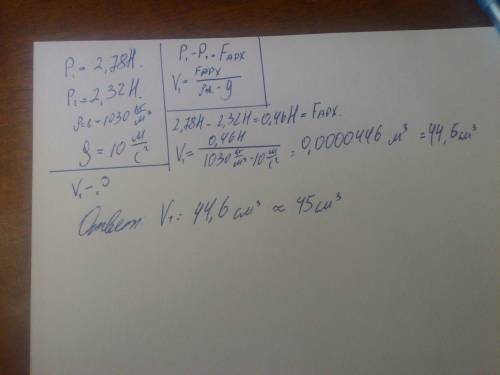 P₁ = 2,78Н.
P₁ = 2,32Н.
ρж = 1030 кг/м³
g = 10 м/с²
V₁ - ?
P₁ - P₁ = Fарх
V₁ = Fарх / ρж · g
2,78Н - 2,32Н = 0,46Н = Fарх.
V₁ = 0,46Н / 1030 кг/м³ · 10 м/с² = 0,0000446 м³ = 44,6 см³
Ответ: V₁ = 44,6 см³ ∝ 45 см³